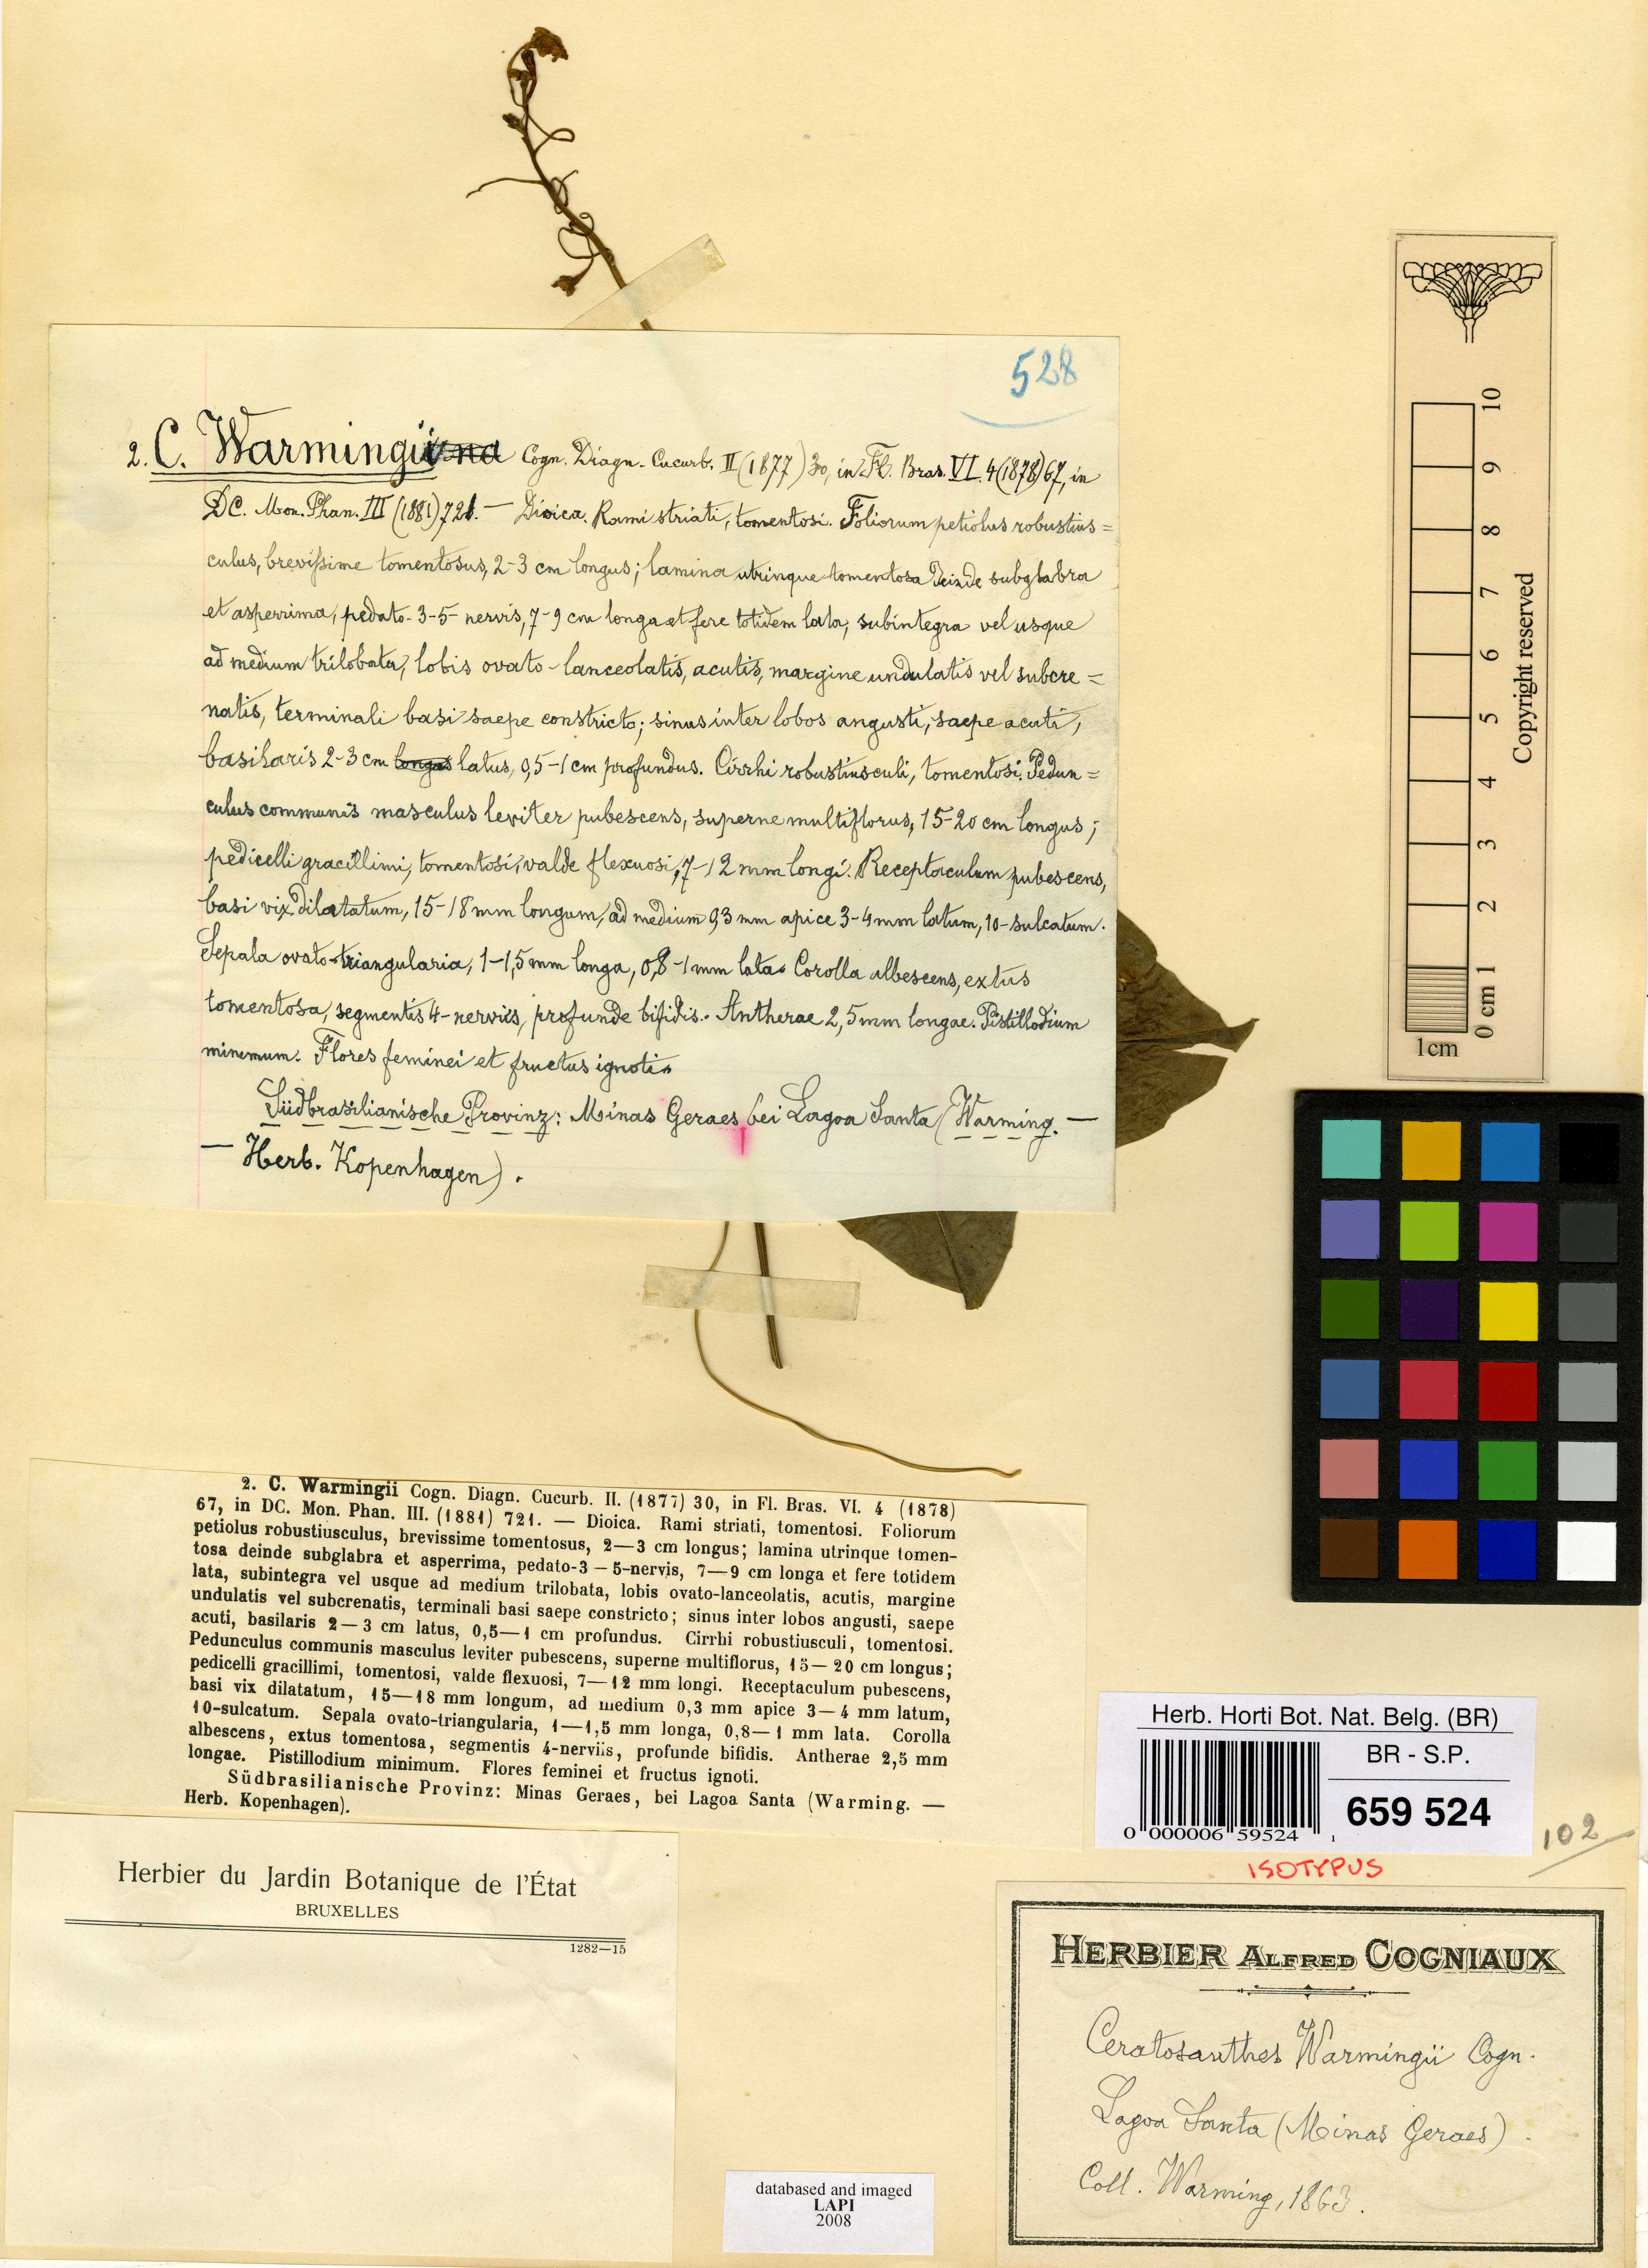 528
2. C. Warmingii Cogn. Diagn. Cucurb. II (1877) 30, in Fl. Bras. VI. 4 (1878) 67, in
DC. Mon. Phan. III (1881) 721. — Dioica. Rami striati, tomentosi. Foliorum petiolus robustius=
culus, brevissime tomentosus, 2-3 cm longus; lamina utrinque tomentosa deinde subglabra
et asperrima, pedato-3-5-nervis, 7-9 cm longa et fere totidem lata, subintegra vel usque
ad medium trilobata, lobis ovato-lanceolatis, acutis, margine undulatis vel subcre=
natis, terminali basi saepe constricto; sinus inter lobos angusti, saepe acuti,
basilaris 2-3 cm longus latus, 0,5-1 cm profundus. Cirrhi robustiusculi, tomentosi. Pedun=
culus communis masculus leviter pubescens, superne multiflorus, 15-20 cm longus;
pedicelli gracillimi, tomentosi, valde flexuosi, 7-12 mm longi. Receptaculum pubescens,
basi vix dilatatum, 15-18 mm longum, ad medium 0,3 mm apice 3-4 mm latum, 10-sulcatum.
Sepala ovato-triangularia, 1-1,5 mm longa, 0,8-1 mm lata. Corolla albescens, extus
tomentosa, segmentis 4-nerviis, profunde bifidis. Antherae 2,5 mm longae. Pistillodium
minimum. Flores feminei et fructus ignoti.
Südbrasilianische Provinz: Minas Geraes bei Lagoa Santa (Warming. —
— Herb. Kopenhagen).
10
9
8
7
6
5
4
3
2
1
0 cm
1cm
Copyright reserved
2. C. Warmingii Cogn. Diagn. Cucurb. II. (1877) 30, in Fl. Bras. VI. 4 (1878)
67, in DC. Mon. Phan. III. (1881) 721. — Dioica. Rami striati, tomentosi. Foliorum
petiolus robustiusculus, brevissime tomentosus, 2—3 cm longus; lamina utrinque tomen-
tosa deinde subglabra et asperrima, pedato-3—5-nervis, 7—9 cm longa et fere totidem
lata, subintegra vel usque ad medium trilobata, lobis ovato-lanceolatis, acutis, margine
undulatis vel subcrenatis, terminali basi saepe constricto; sinus inter lobos angusti, saepe
acuti, basilaris 2—3 cm latus, 0,5—1 cm profundus. Cirrhi robustiusculi, tomentosi.
Pedunculus communis masculus leviter pubescens, superne multiflorus, 15—20 cm longus;
pedicelli gracillimi, tomentosi, valde flexuosi, 7—12 mm longi. Receptaculum pubescens,
basi vix dilatatum, 15—18 mm longum, ad medium 0,3 mm apice 3—4 mm latum,
10-sulcatum. Sepala ovato-triangularia, 1—1,5 mm longa, 0,8—1 mm lata. Corolla
albescens, extus tomentosa, segmentis 4-nerviis, profunde bifidis. Antherae 2,5 mm
longae. Pistillodium minimum. Flores feminei et fructus ignoti.
Südbrasilianische Provinz: Minas Geraes, bei Lagoa Santa (Warming. —
Herb. Kopenhagen).
Herb. Horti Bot. Nat. Belg. (BR)
BR - S.P.
659 524
0 000006 59524 1
102
ISOTYPUS
Herbier du Jardin Botanique de l'État
BRUXELLES
1282—15
HERBIER ALFRED COGNIAUX
Ceratosanthes Warmingii Cogn.
Lagoa Santa (Minas Geraes).
Coll. Warming, 1863.
databased and imaged
LAPI
2008